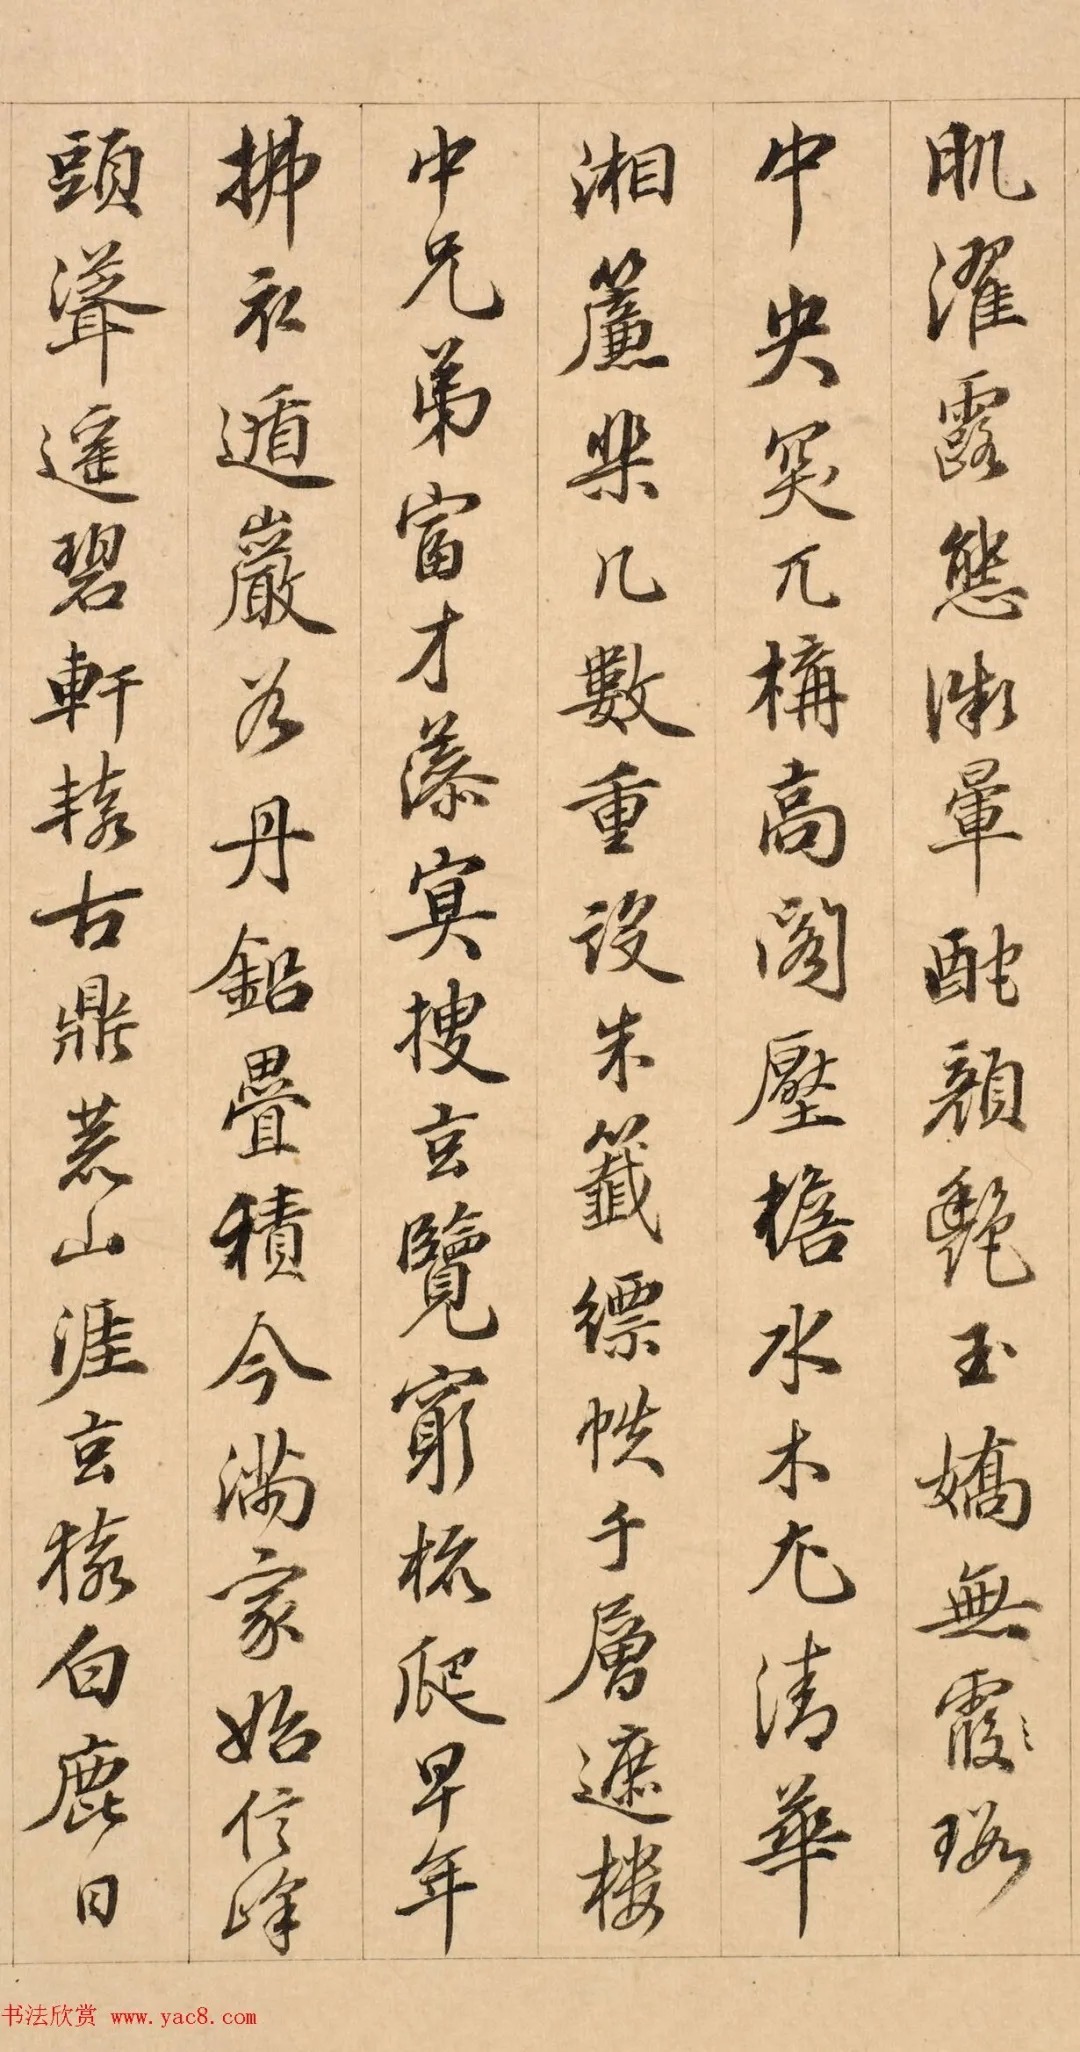 肌濯露態微暈酡顏艷玉嬌無霞瑕
中央突兀構高閣壓檐水木尤清華
湘簾棐几數重設朱籤縹帙千層遮樓
中兄弟富才藻冥搜玄覽窮梳爬早年
拂衣遁巖谷丹鉛疊積今滿家始信峰
頭聳遙碧軒轅古鼎荒山涯玄猿白鹿日
书法欣赏 www.yac8.com